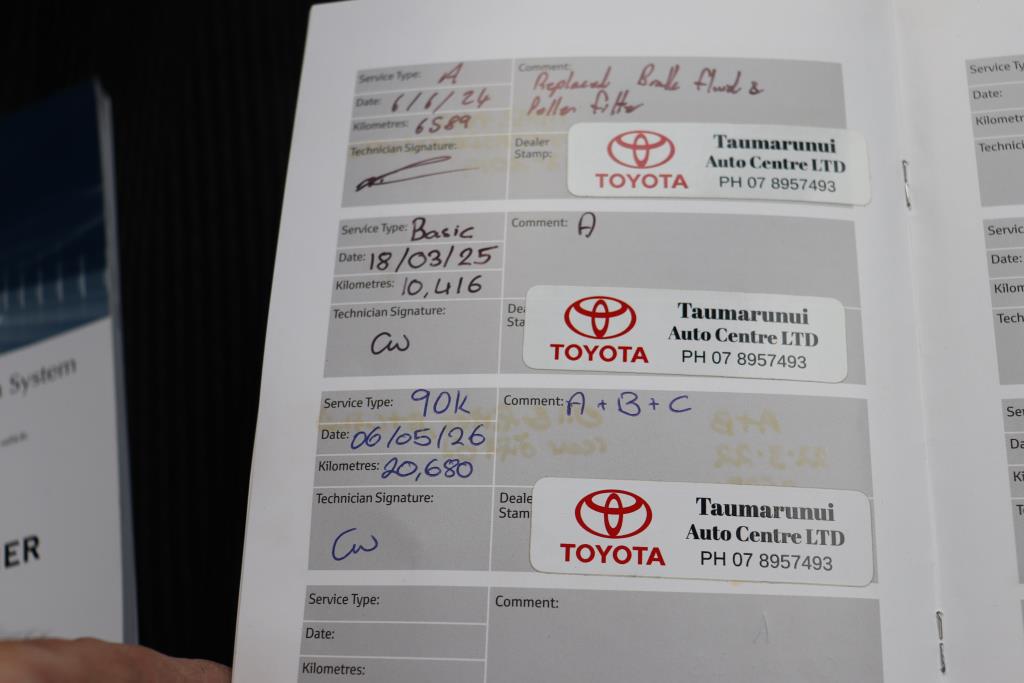 Service Type: A
Comment: Replaced Brake fluid &
Pollen filter
Date: 6/6/24
Kilometres: 6589
Technician Signature:
Dealer
Stamp:
TOYOTA
Taumarunui
Auto Centre LTD
PH 07 8957493
Service Type: Basic
Comment: A
Date: 18/03/25
Kilometres: 10,416
Technician Signature:
CW
TOYOTA
Taumarunui
Auto Centre LTD
PH 07 8957493
Service Type: 90K
Comment: A + B + C
Date: 06/05/26
Kilometres: 20,680
Technician Signature:
CW
TOYOTA
Taumarunui
Auto Centre LTD
PH 07 8957493
Service Type:
Comment:
Date:
Kilometres:
System
ER
Service Ty
Date:
Kilometr
Technici
Servic
Date:
Kilom
Tech
Se
Da
Ki
T